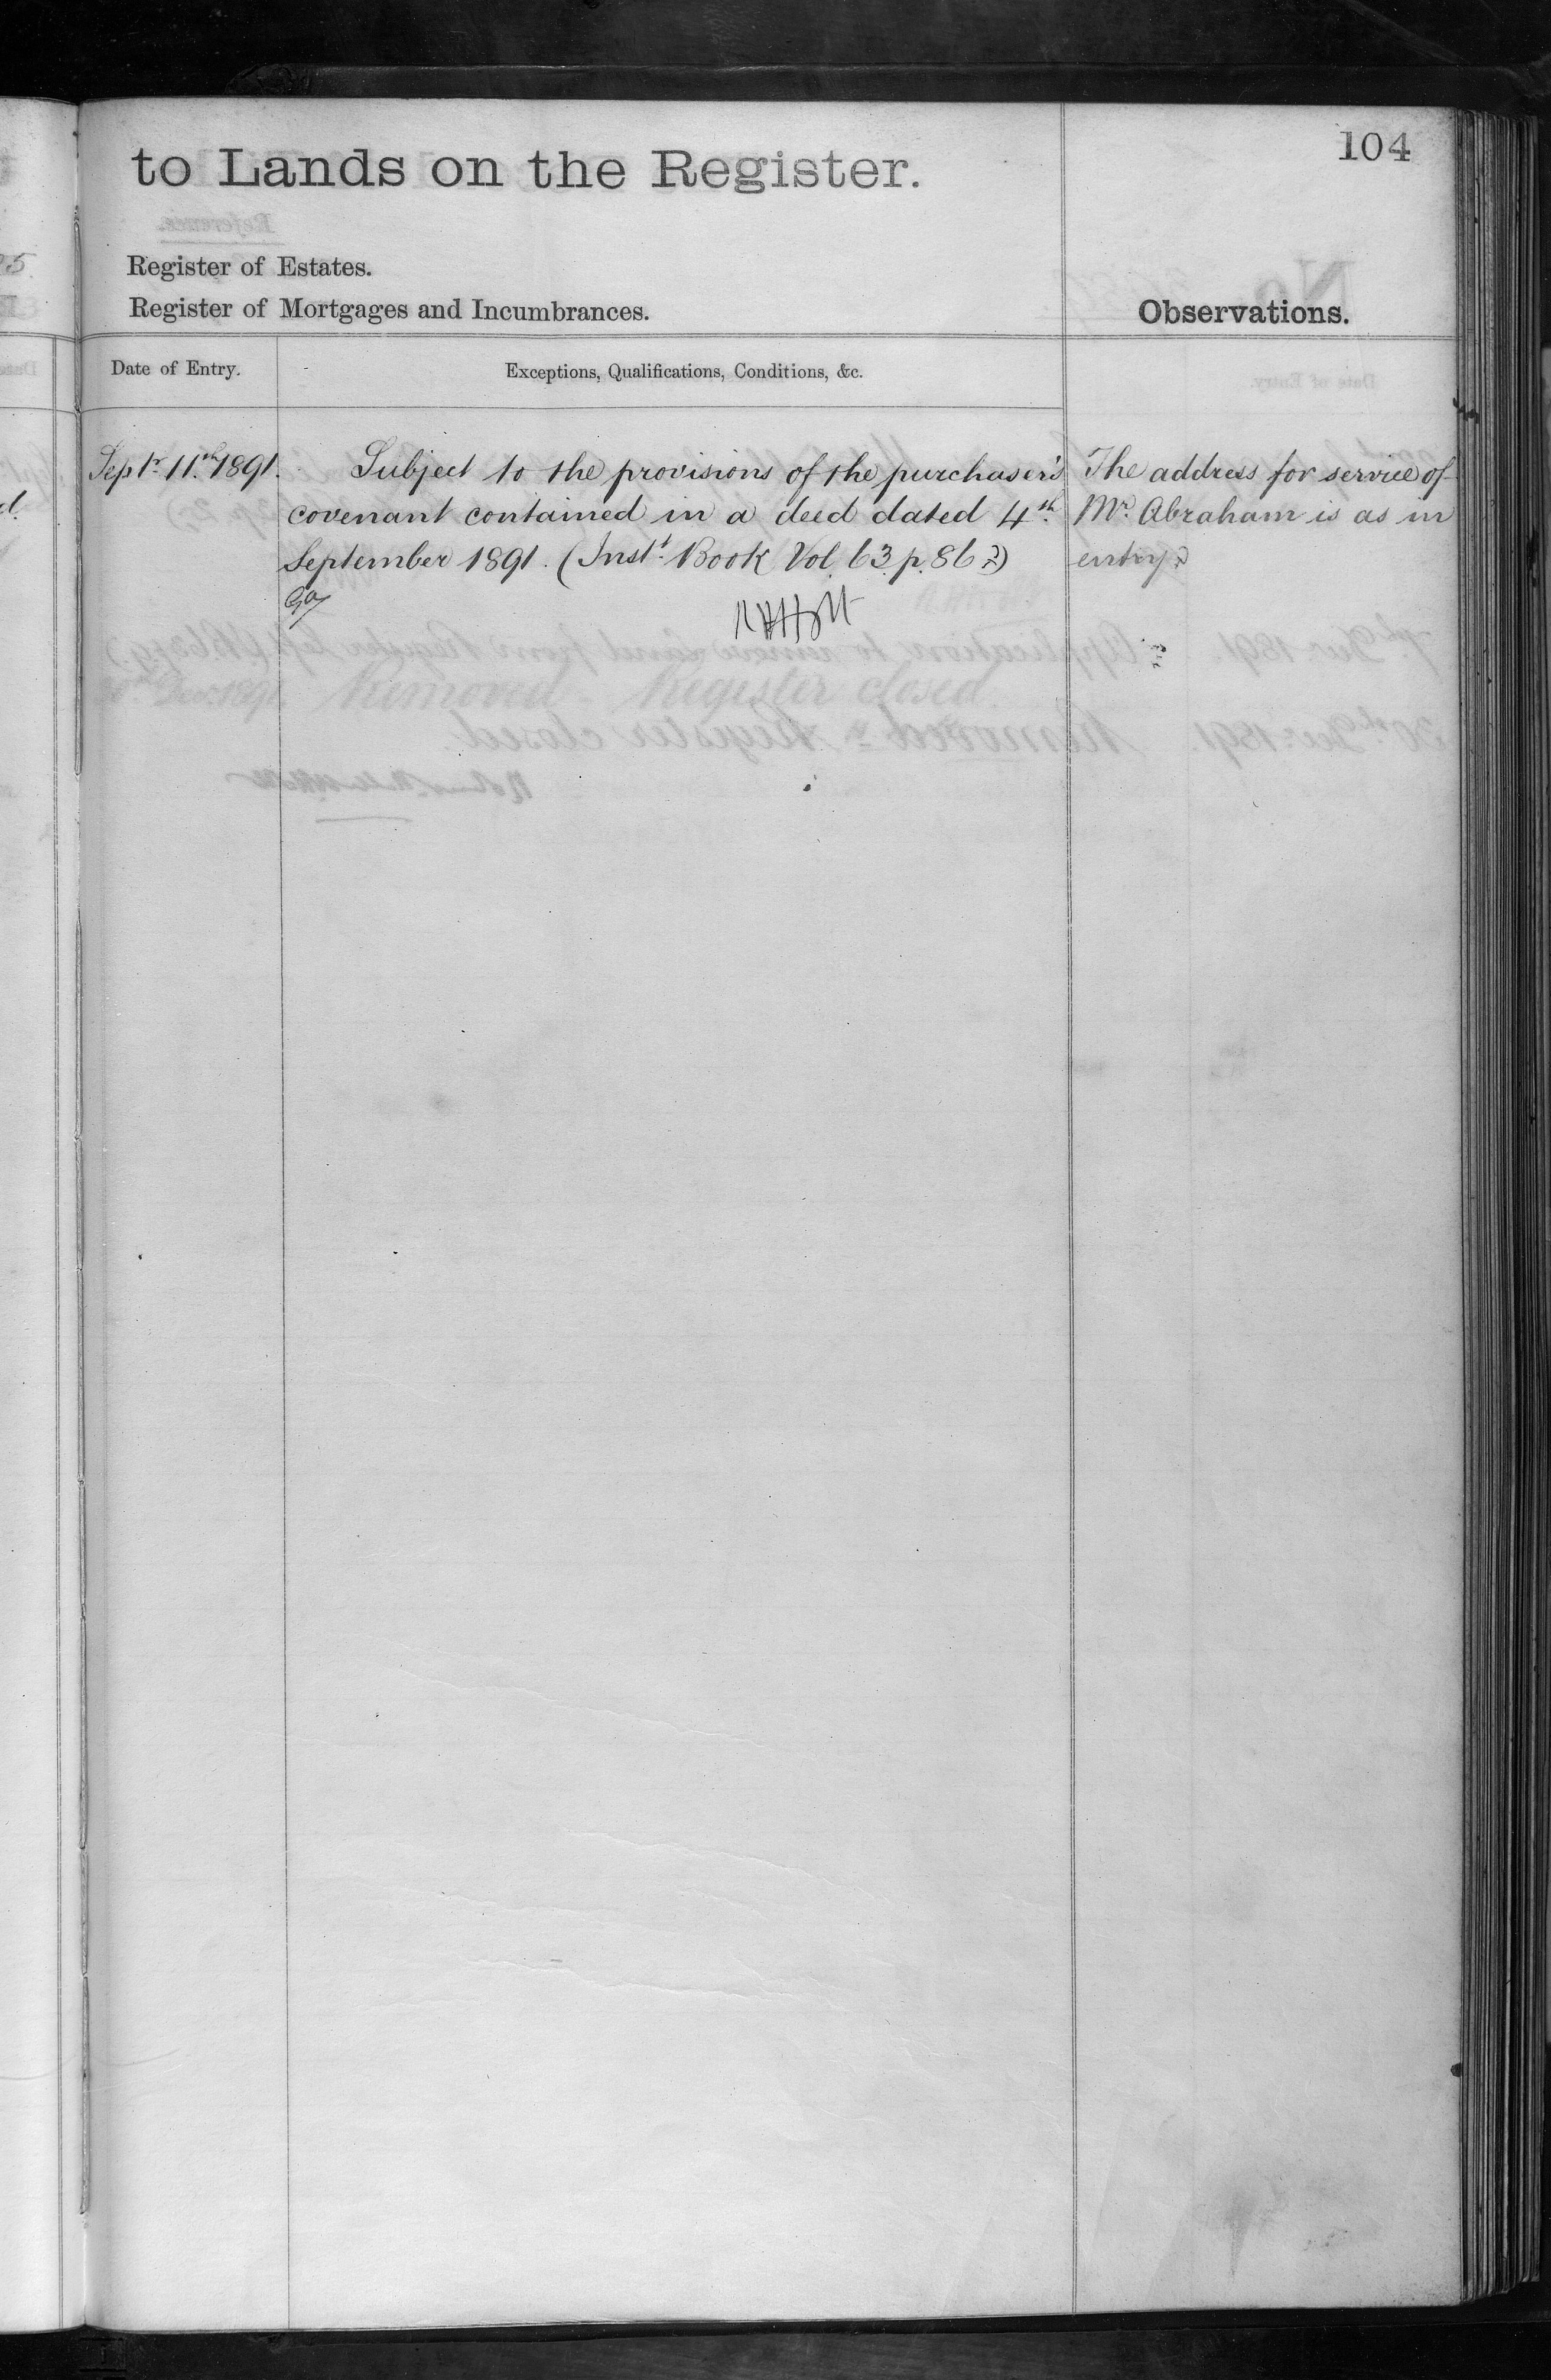 104
to Lands on the Register.
Register of Estates.
Register of Mortgages and Incumbrances.
Observations.
Date of Entry.
Exceptions, Qualifications, Conditions, &c.
Septr. 11.th 1891.
Subject to the provisions of the purchaser's
covenant contained in a deed dated 4th.
September 1891. (Instt. Book Vol. 63. p. 86
The address for service of
Mr. Abraham is as in
entry
Removed - Register closed.